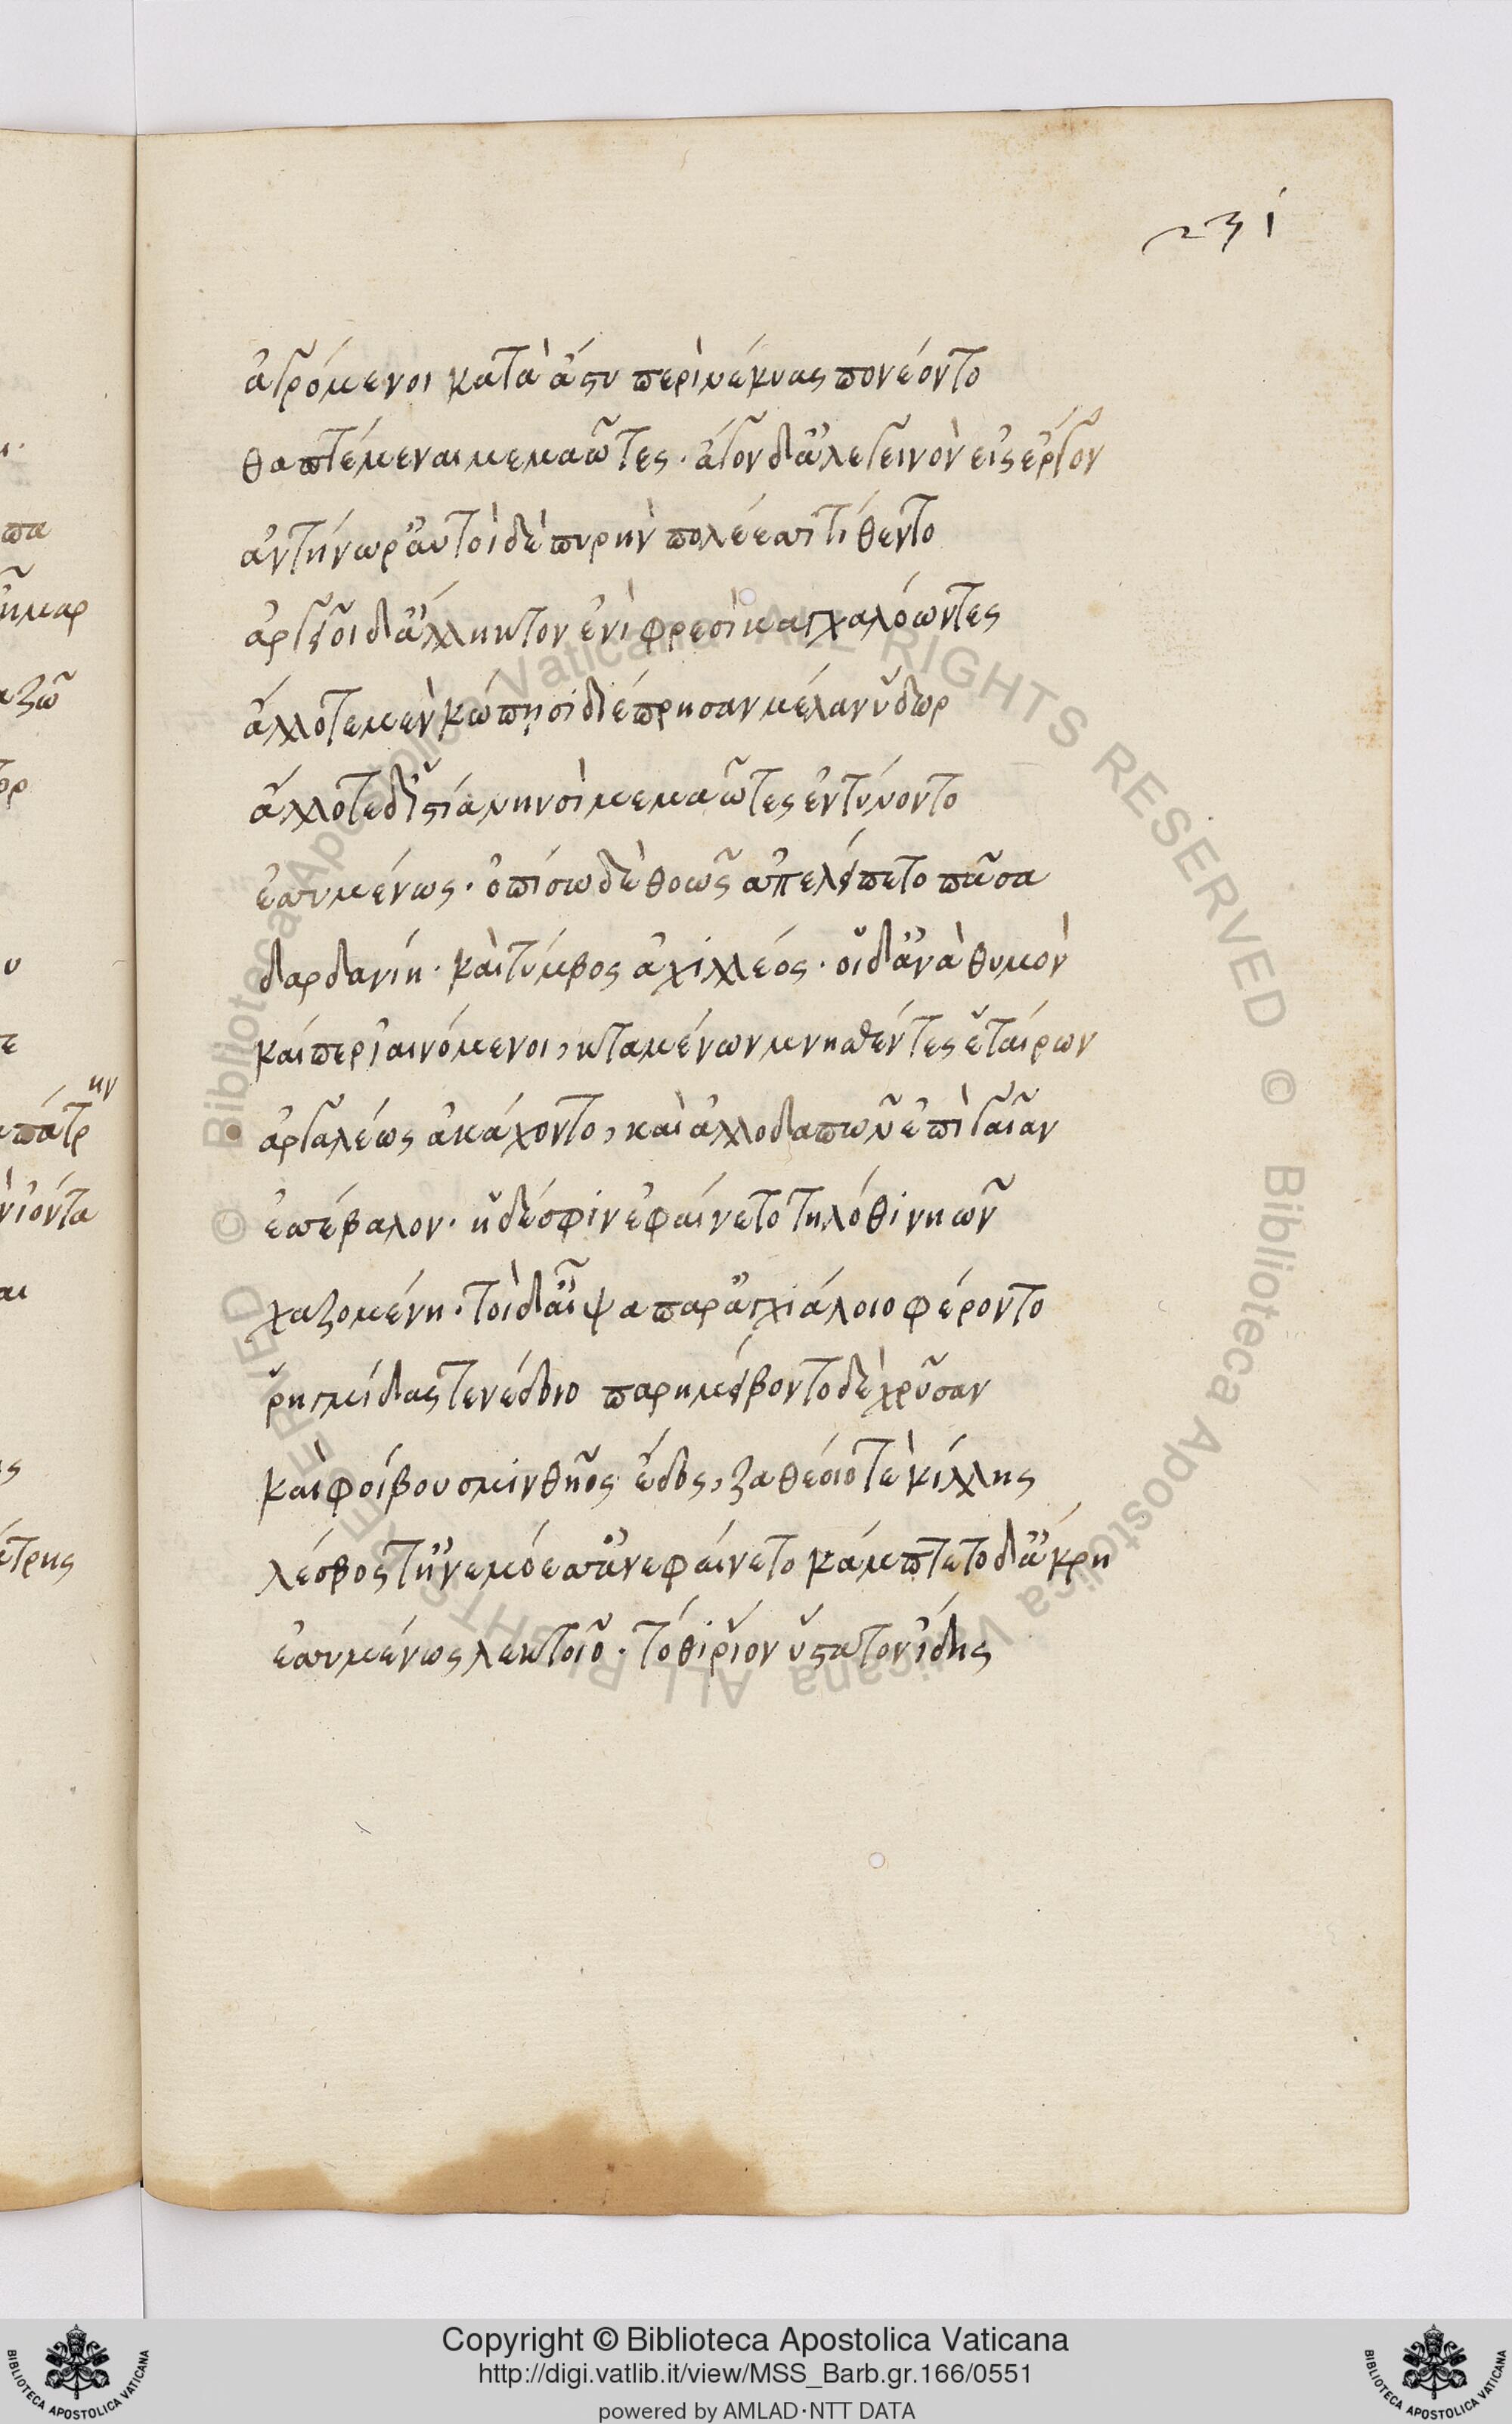 231
ἀγρόμενοι κατὰ ἄστυ περὶ νέκυας πονέοντο
θαπτέμεναι μεμαῶτες. ἆγον δ' ἀλεγεινὸν εἰς ἔργον
ἀντήνωρ αὐτοὶ δὲ πυρὴν πολέες τίθεντο
ἀργεῖοι δ' ἄλληκτον ἐνὶ φρεσὶ καγχαλόωντες
ἄλλοτε μὲν κώπησι διέπρησαν μέλαν ὕδωρ
ἄλλοτε δ' ἱστία νηυσὶ μεμαῶτες ἐντύνοντο
ἐσσυμένως. ὀπίσω δὲ θοῶς ἀπελείπετο πᾶσα
δαρδανίη. καὶ τύμβος ἀχιλλέος. οἱ δ' ἀνὰ θυμὸν
καίπερ ἰαινόμενοι, κταμένων μνησθέντες ἑταίρων
ἀργαλέως ἀκάχοντο, καὶ ἀλλοδαπῶν ἐπὶ γαῖαν
ἔσέβαλον. ἡ δέ σφιν ἐφαίνετο τηλόθι νηῶν
χαζομένη. τοὶ δ' αἶψα παρ' ἀγχιάλοιο φέροντο
ῥηγμίδας τενέδοιο παρημείβοντο δὲ χρῦσαν
καὶ φοίβου σμινθῆος ἕδος, ζαθέοιό τε κίλλης
λέσβος τ' ἠνεμόεσσ' ἀνεφαίνετο κάμπτετο δ' ἄκρη
ἐσσυμένως λεκτοῖο. τόθι ῥίον ὕστατον ἴδης
Copyright © Biblioteca Apostolica Vaticana
http://digi.vatlib.it/view/MSS_Barb.gr.166/0551
powered by AMLAD·NTT DATA